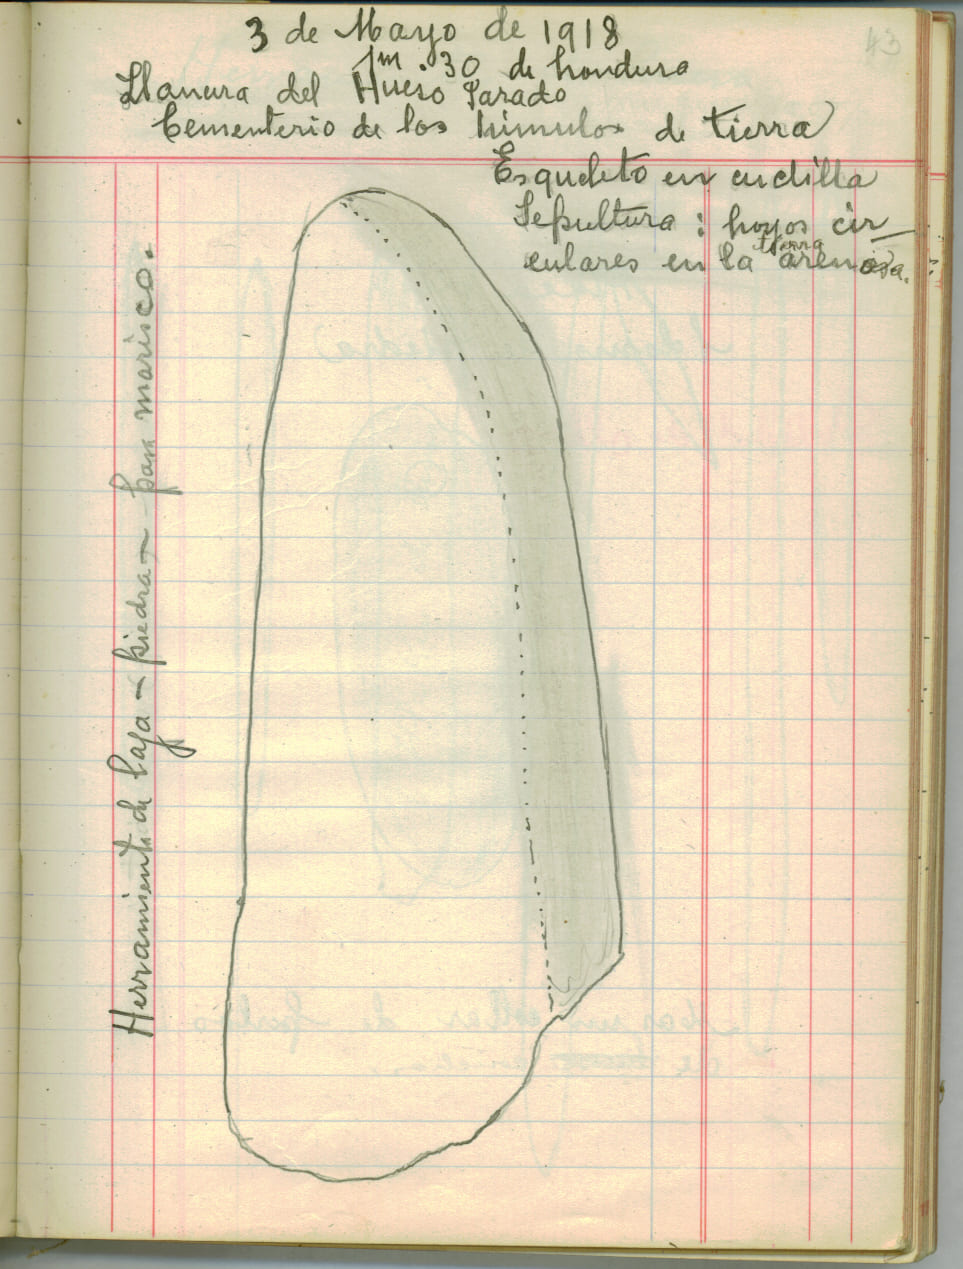 43
3 de Mayo de 1918
1m.30 de hondura
Llanura del Hueso Parado
Cementerio de los túmulos de tierra
Esqueleto en cuclilla
Sepultura : hoyos cir-
culares en la tierra arenosa.
Herramienta de laja - piedra - para marisco.